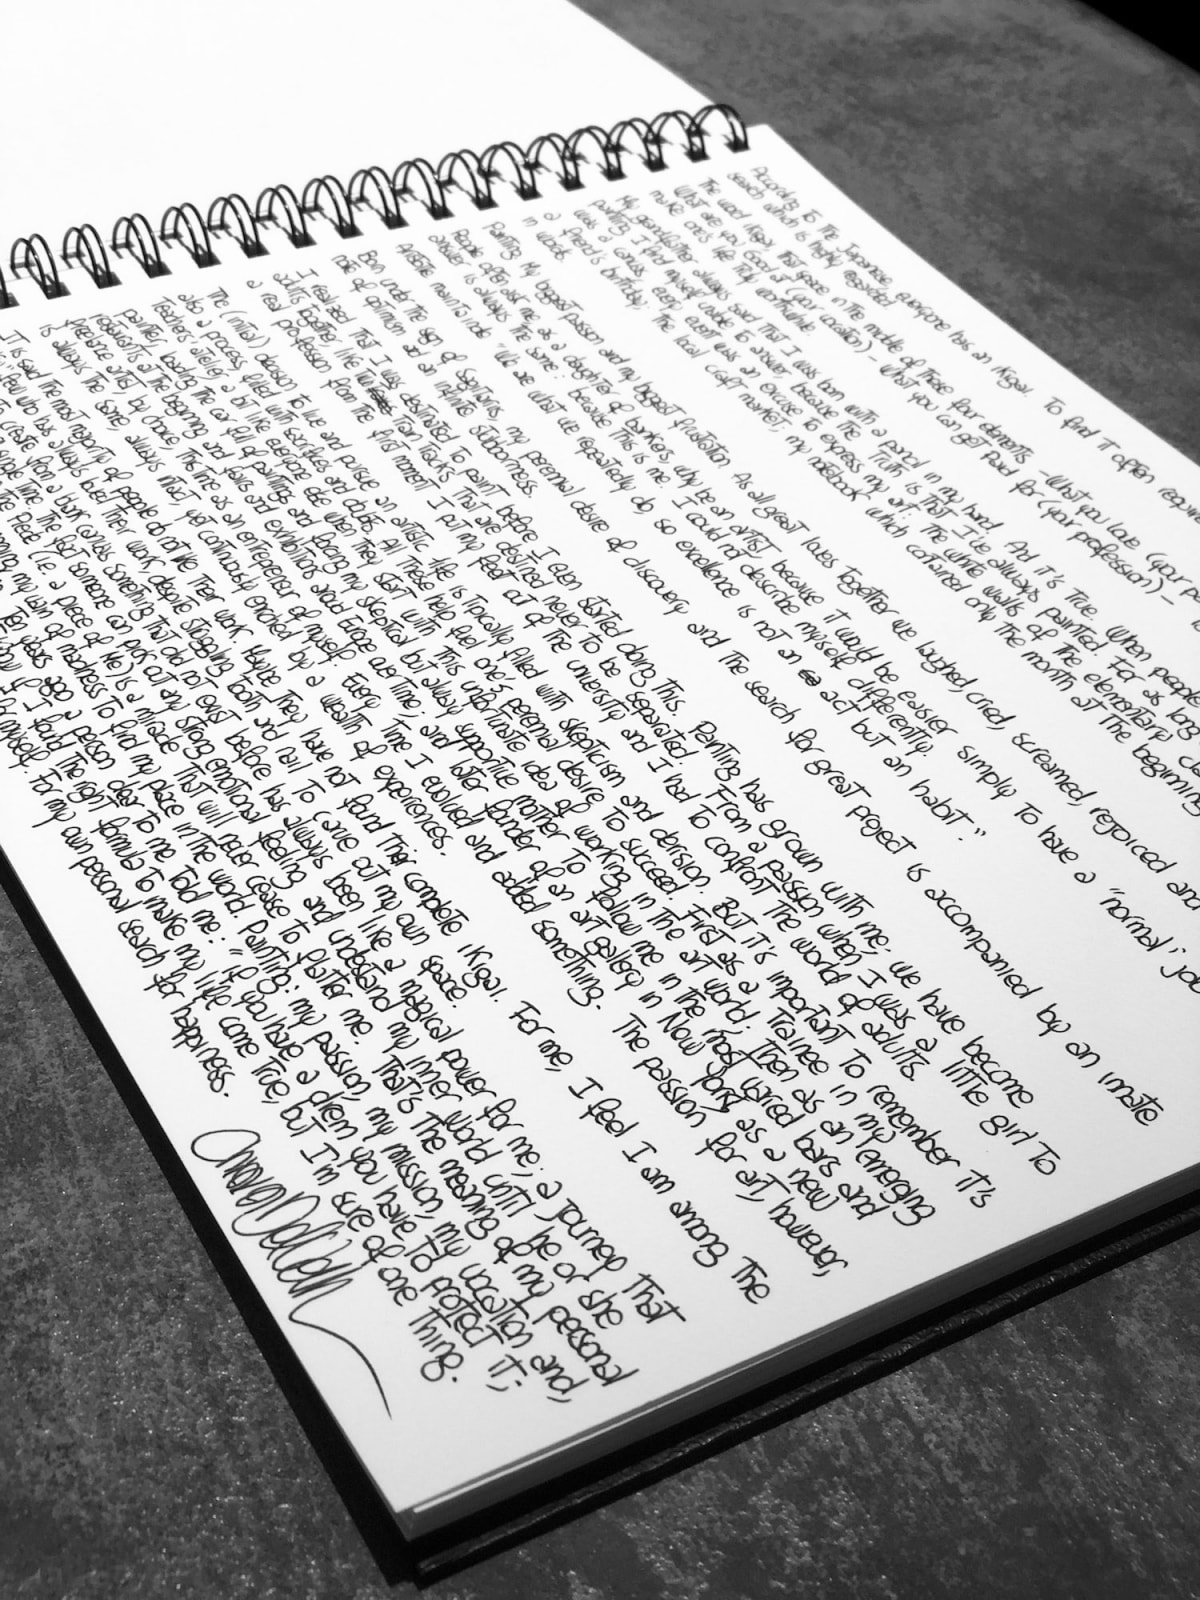 According To The Japanese, everyone has an ikigai. To find it often requires
search which is highly regarded.
The word ikigai first glance in the middle of these four elements - What you love (your
What are you good at (your vocation) - What you can get paid for (your profession) -
make one's life truly worthwhile.
My grandfather always said that I was born with a pencil in my hand. And it's True. When people
painting, I find myself unable to answer because the Truth is that I've always painted. For as long
was a canvas, every event was an excuse to express my art. The white walls of the elementary
a friend's birthday, The local craft market, my notebook which contained only The month at The beginning
in words.
Painting. My biggest passion and my biggest frustration. As all great loves together we laughed, cried, screamed, rejoiced and
People often ask me, as a daughter of bankers, why be an artist because it would be easier simply To have a "normal" job
answer is always The same: because This is me. I could not describe myself differently.
Aristotle main's rule "We are what we repeatedly do, so excellence is not an act but an habit".
Born under the sign of Sagittarius my perennial desire of discovery and The search for great project is accompanied by an innate
role of optimism and an infinite stubbornness.
I realized That I was destined To paint before I even started doing This. Painting has grown with me; we have become
souls together, like Two Train Tracks That are destined never To be separated. From a passion when I was a little girl To
a real profession from The first moment I put my feet out of The university and I had To confront The world of adults.
The (initial) decision To live and pursue an artistic life is Typically filled with skepticism and derision. But it's important To remember it's
also a process filled with sacrifices and doubts. All These help fuel one's perennial desire To succeed. First as a Trainee in my
Teachers' atelier, a bit like everyone else when They start with This unfortunate idea of working in The art world. Then as an emerging
painter, loading The car full of paintings and forcing my skeptical but always supportive mother To follow me in The most varied bars and
restaurants at The beginning and fairs and exhibitions around Europe overtime; and later founder of an art gallery in New York as a new
freelance artist, by choice, This Time as an entrepreneur of myself. Every Time I evolved and added something. The passion for art, however,
is always The same, always intact, yet continuously enriched by a wealth of experiences.
IT is said The most majority of people do not like Their work. Maybe They have not found Their complete ikigai. For me, I feel I am among The
few who has always built Their work despite struggling Tooth and nail To carve out my own space.
To create from a blank canvas something That did not exist before has always been like a magical power for me; a journey That
Time. The fact someone can pick out any strong emotional feeling and understand my inner world until he or she
piece (i.e. a piece of me) is a miracle That will never cease To flatter me. That's The meaning of my personal
my vein of madness To find my place in The world. Painting: my passion, my mission, my vocation and,
Ten years ago a person dear To me Told me: "If you have a dream you have To protect it";
if I found The right formula To make my live come True, but I'm sure of one Thing.
for myself. For my own personal search for happiness.